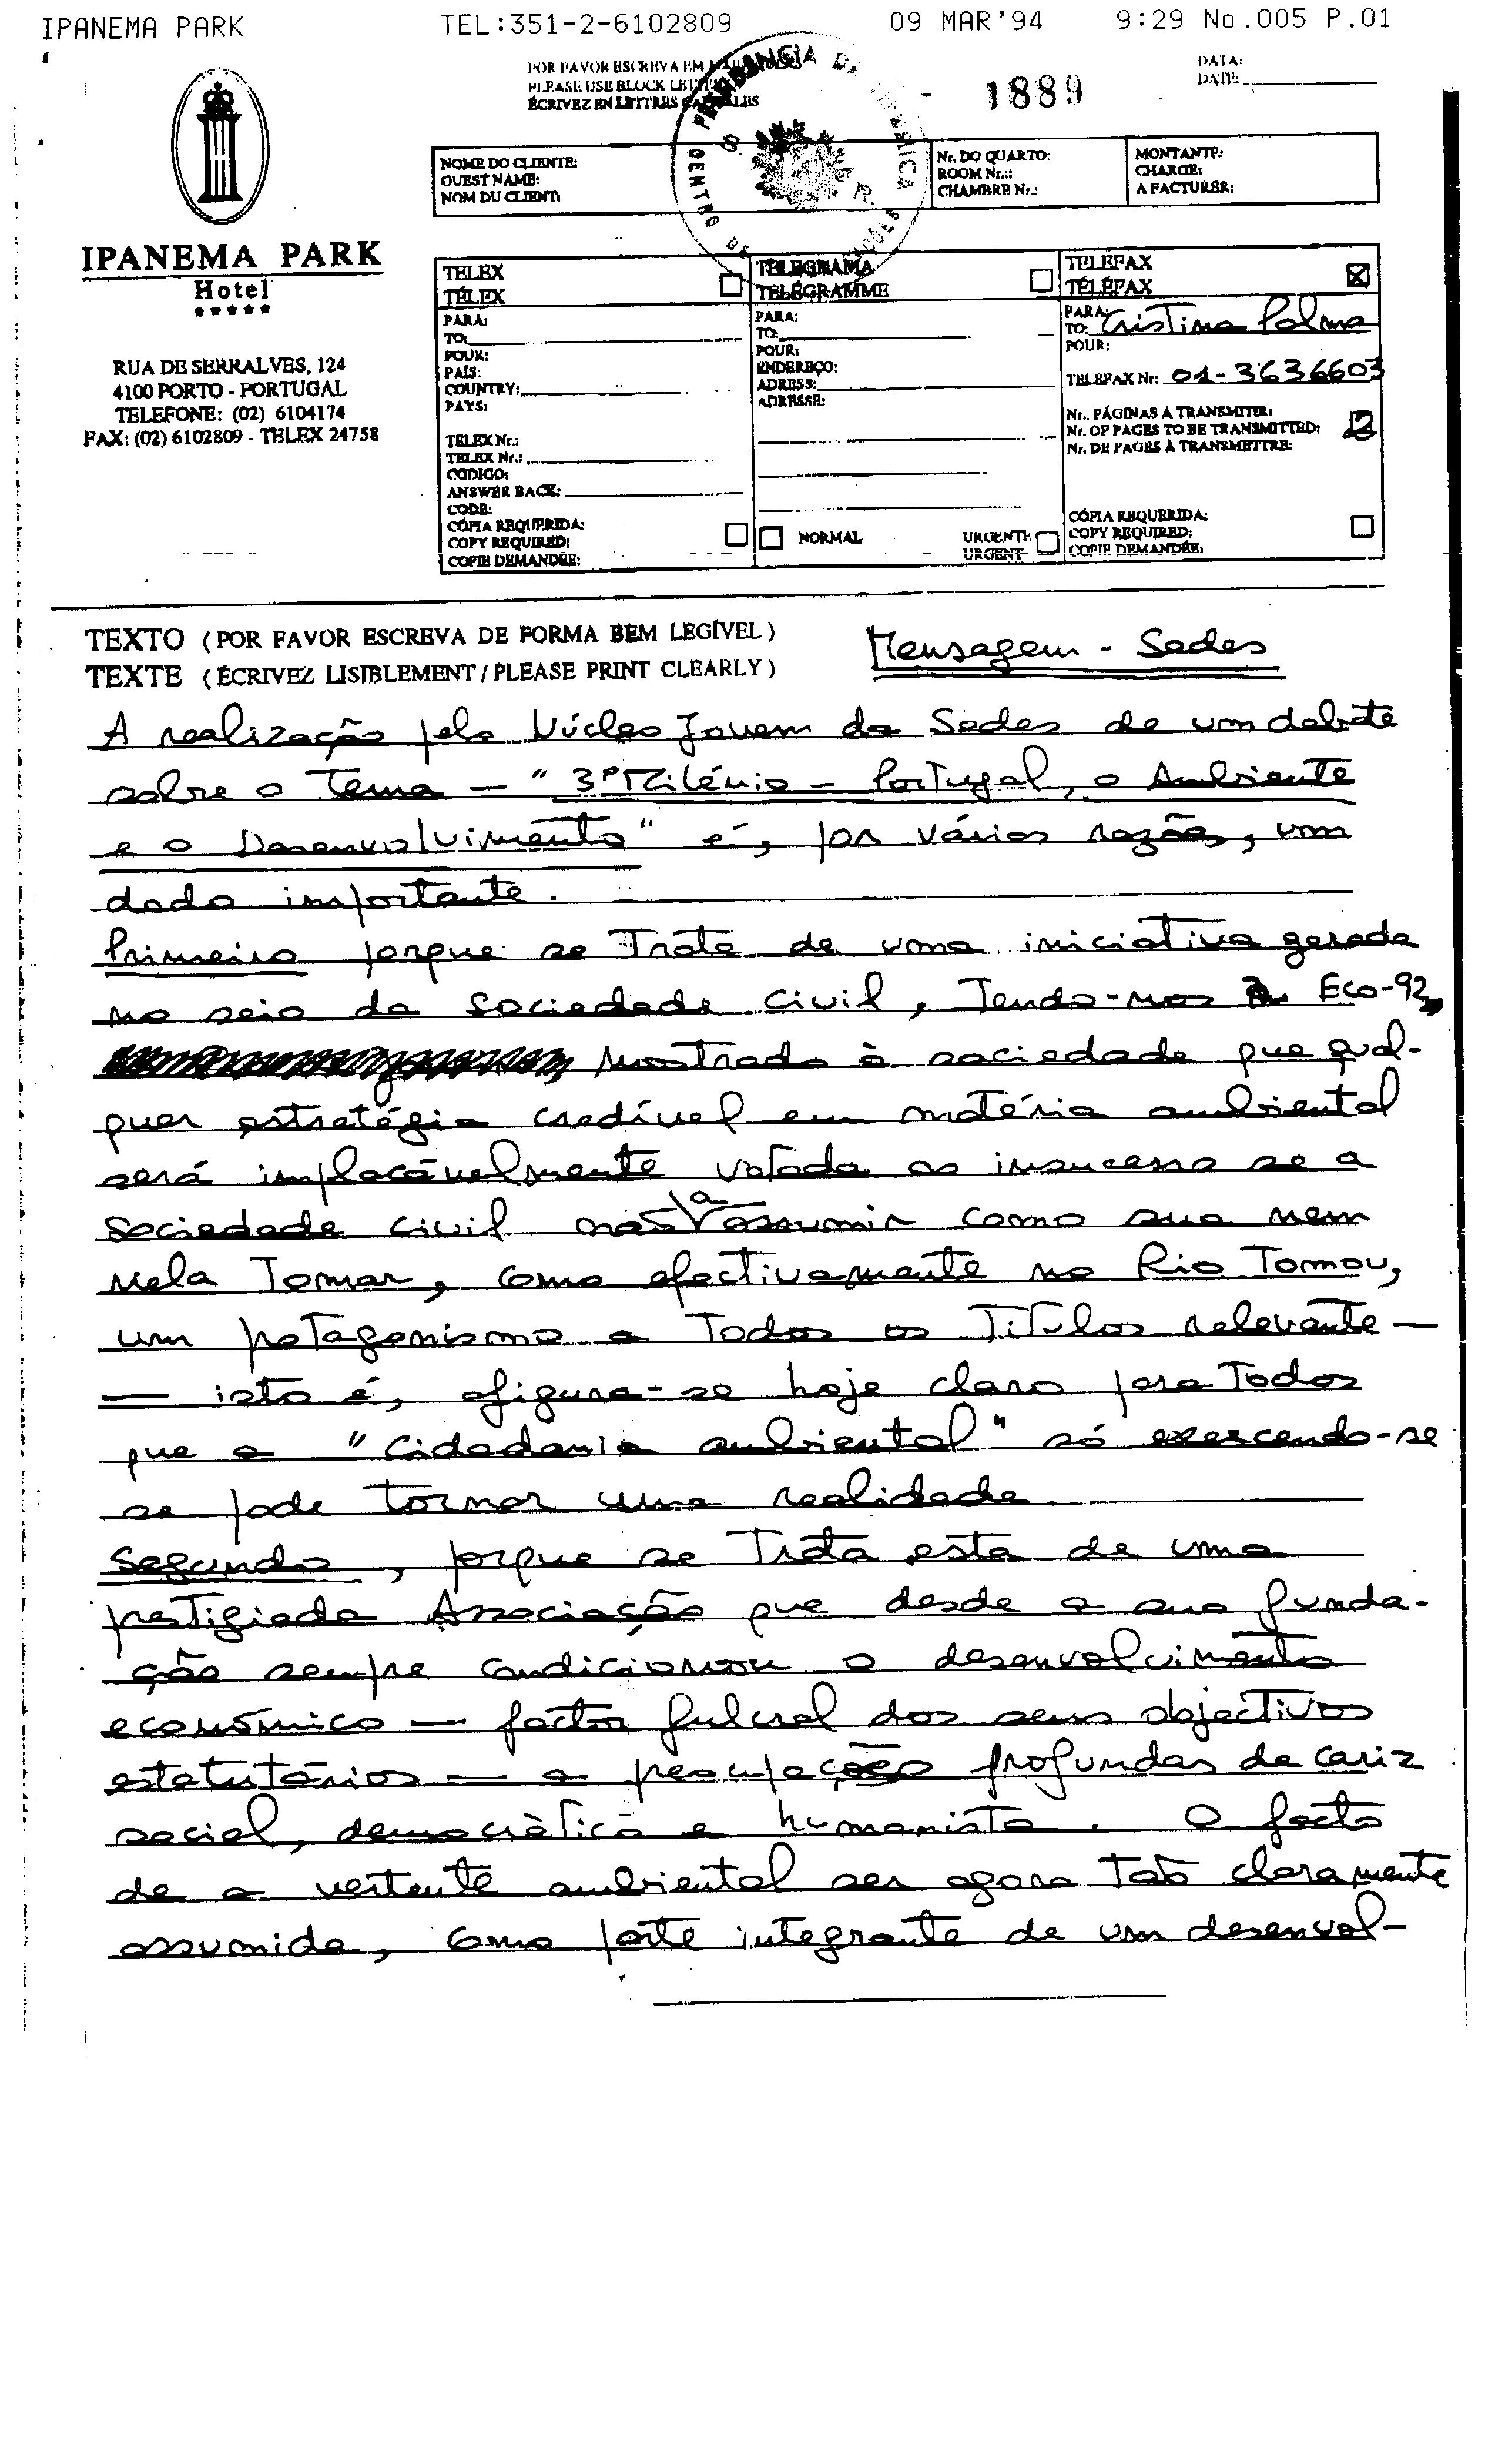 IPANEMA PARK TEL:351-2-6102809 09 MAR'94 9:29 No.005 P.01
POR FAVOR ESCREVA EM
PLEASE USE BLOCK
ÉCRIVEZ EN LETTRES
1889
DATA:
DATE:
NOME DO CLIENTE:
GUEST NAME:
NOM DU CLIENT:
Nr. DO QUARTO:
ROOM Nr.:
CHAMBRE Nr.:
MONTANTE:
CHARGE:
A FACTURER:
IPANEMA PARK
Hotel
★★★★★
RUA DE SERRALVES, 124
4100 PORTO - PORTUGAL
TELEFONE: (02) 6104174
FAX: (02) 6102809 - TELEX 24758
TELEX
TÉLEX
PARA:
TO:
POUR:
PAÍS:
COUNTRY:
PAYS:
TELEX Nr.:
TELEX Nr.:
CODIGO:
ANSWER BACK:
CODE:
CÓPIA REQUERIDA:
COPY REQUIRED:
COPIE DEMANDÉE:
TELEGRAMA
TELÉGRAMME
PARA:
TO:
POUR:
ENDEREÇO:
ADRESS:
ADRESSE:
NORMAL
URGENTE
URGENT
TELEFAX
TÉLÉFAX
PARA:
TO: Cristina Palma
POUR:
TELEFAX Nr: 01-3636603
Nr. PÁGINAS A TRANSMITIR:
Nr. OF PAGES TO BE TRANSMITTED: 2
Nr. DE PAGES À TRANSMETTRE:
CÓPIA REQUERIDA:
COPY REQUIRED:
COPIE DEMANDÉE:
TEXTO (POR FAVOR ESCREVA DE FORMA BEM LEGÍVEL)
TEXTE (ÉCRIVEZ LISIBLEMENT / PLEASE PRINT CLEARLY)
Mensagem - Sedes
A realização pelo Núcleo Jovem da Sedes de um debate
sobre o tema — "3º Milénio - Portugal, o Ambiente
e o Desenvolvimento" é, por várias razões, um
dado importante.
Primeiro porque se trata de uma iniciativa gerada
no seio da sociedade civil, Tendo-nos a Eco-92,
mostrado à sociedade que qual-
quer estratégia credível em matéria ambiental
será implacávelmente votada ao insucesso se a
sociedade civil não a assumir como sua nem
nela Tomar, como efectivamente no Rio Tomou,
um protagonismo a Todos os Títulos relevante —
— isto é, afigura-se hoje claro para Todos
que a "cidadania ambiental" só exercendo-se
se pode tornar uma realidade.
Segundo, porque se Trata esta de uma
prestigiada Associação que desde a sua funda-
ção sempre condicionou o desenvolvimento
económico — factor fulcral dos seus objectivos
estatutários — a preocupações profundas de cariz
social, democràtico e humanista. O facto
de a vertente ambiental ser agora Tão claramente
assumida, como parte integrante de um desenvol-